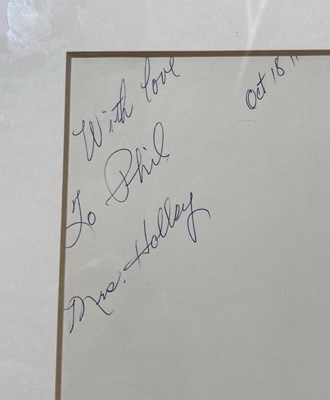 With love
Oct 18
To Phil
Mrs. Holley